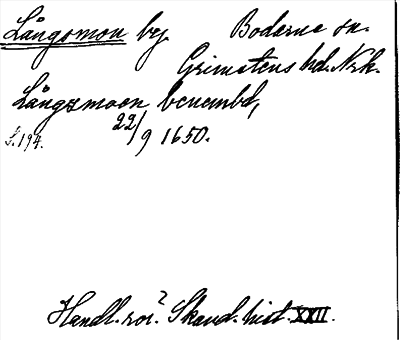 Långsmon by. Boderne sn.
Grimstens hd. Nrk.
Långzmoen benembd,
S. 194. 22/9 1650.
Handl. ror? Skand. hist. XXII.